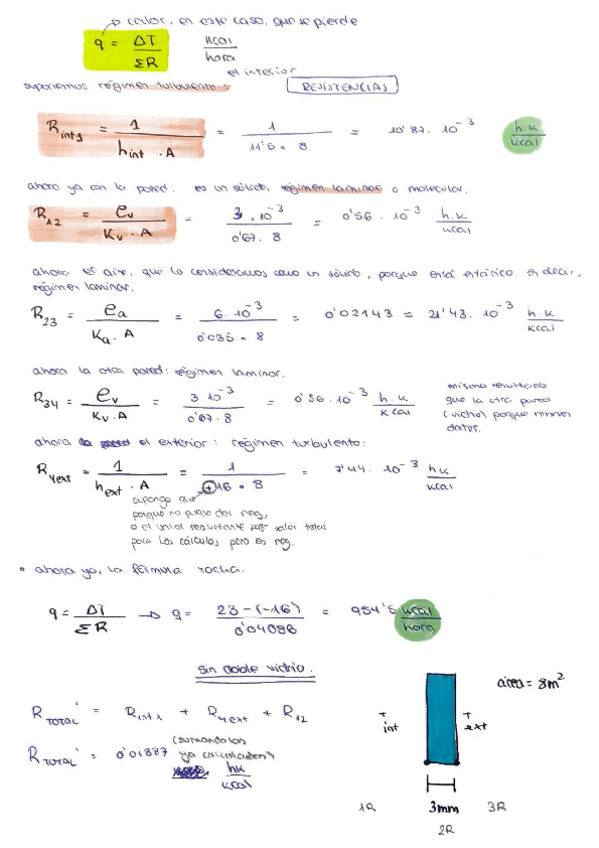 calor, en este caso, que se pierde
q = ΔT / ΣR kcal / hora
el interior
suponemos régimen turbulento RESISTENCIAS
R int1 = 1 / h int · A = 1 / 11'5 · 8 = 10'87 · 10⁻³ h·k / kcal
ahora ya con la pared: es un sólido, régimen laminar o molecular.
R₁₂ = e_v / K_v · A = 3 · 10⁻³ / 0'67 · 8 = 0'56 · 10⁻³ h·k / kcal
ahora el aire, que lo consideramos como un sólido, porque está estático. es decir,
régimen laminar.
R₂₃ = e_a / K_a · A = 6 · 10⁻³ / 0'035 · 8 = 0'02143 = 21'43 · 10⁻³ h·k / kcal
ahora la otra pared: régimen laminar.
R₃₄ = e_v / K_v · A = 3 10⁻³ / 0'67 · 8 = 0'56 · 10⁻³ h·k / kcal
mismo resultado
que la otra pared
(vidrio) porque mismos
datos.
ahora el exterior: régimen turbulento:
R 4ext = 1 / h ext · A = 1 / +16 · 8 = 7'44 · 10⁻³ hk / kcal
supongo que
porque no puede dar neg,
o el valor resultante valor total
para los cálculos, pero es neg.
• ahora ya, la fórmula tocha.
q = ΔT / ΣR → q = 23 - (-16) / 0'04086 = 954'5 kcal / hora
sin doble vidrio.
R TOTAL' = R int1 + R 4ext + R₁₂
R TOTAL' = 0'01887 (sumando los
ya calculados)
hk / kcal
área = 8m²
T int
T ext
1R 3mm 3R
2R